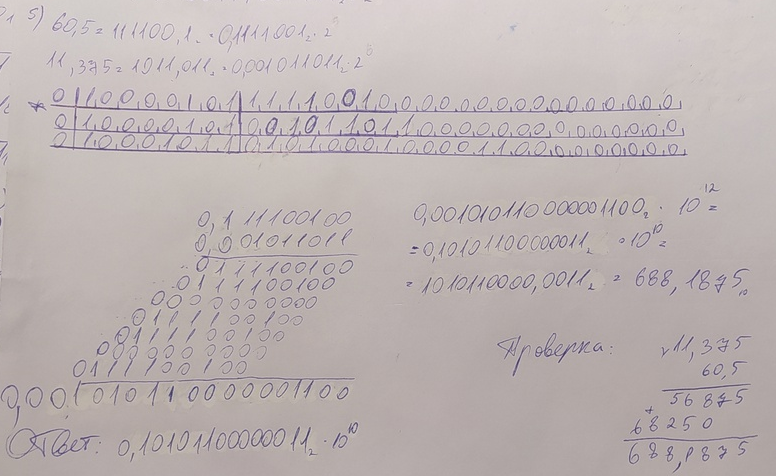 5) 60,5 = 111100,1₂ = 0,1111001₂ · 2⁶
11,375 = 1011,011₂ = 0,001011011₂ · 2⁶
* 0 | 1,0,0,0,0,1,0,1 | 1,1,1,1,0,0,1,0,0,0,0,0,0,0,0,0,0,0,0,0,0,0,0,
0 | 1,0,0,0,0,1,0,1 | 0,0,1,0,1,1,0,1,1,0,0,0,0,0,0,0,0,0,0,0,0,0,0,
0,1111100100
0,001011011
01111100100
01111100100
0000000000
0111100100
01111100100
0000000000
0111100100
0,00101011000000001100
Ответ: 0,10101100000011₂ · 10¹⁰
0,0010101100000001100₂ · 10¹² =
= 0,10101100000011₂ · 10¹⁰ =
= 1010110000,0011₂ = 688,1875₁₀
Проверка: 11,375
60,5
56875
+ 68250
688,1875